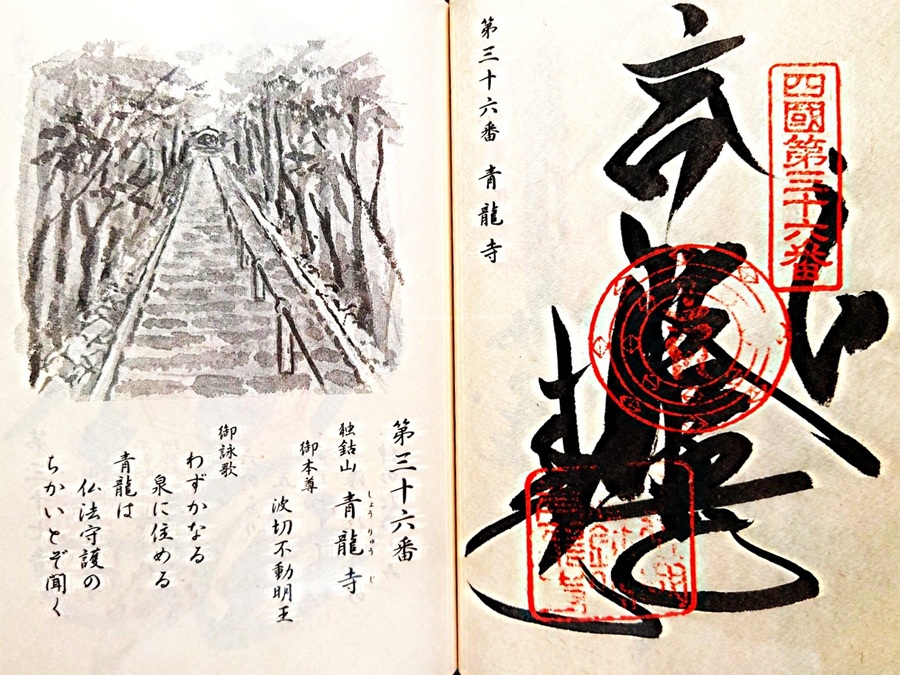 四國第三十六番
第三十六番 青龍寺
第三十六番
独鈷山 青龍寺
しょうりゅうじ
御本尊
波切不動明王
御詠歌
わずかなる
泉に住める
青龍は
仏法守護の
ちかいとぞ聞く